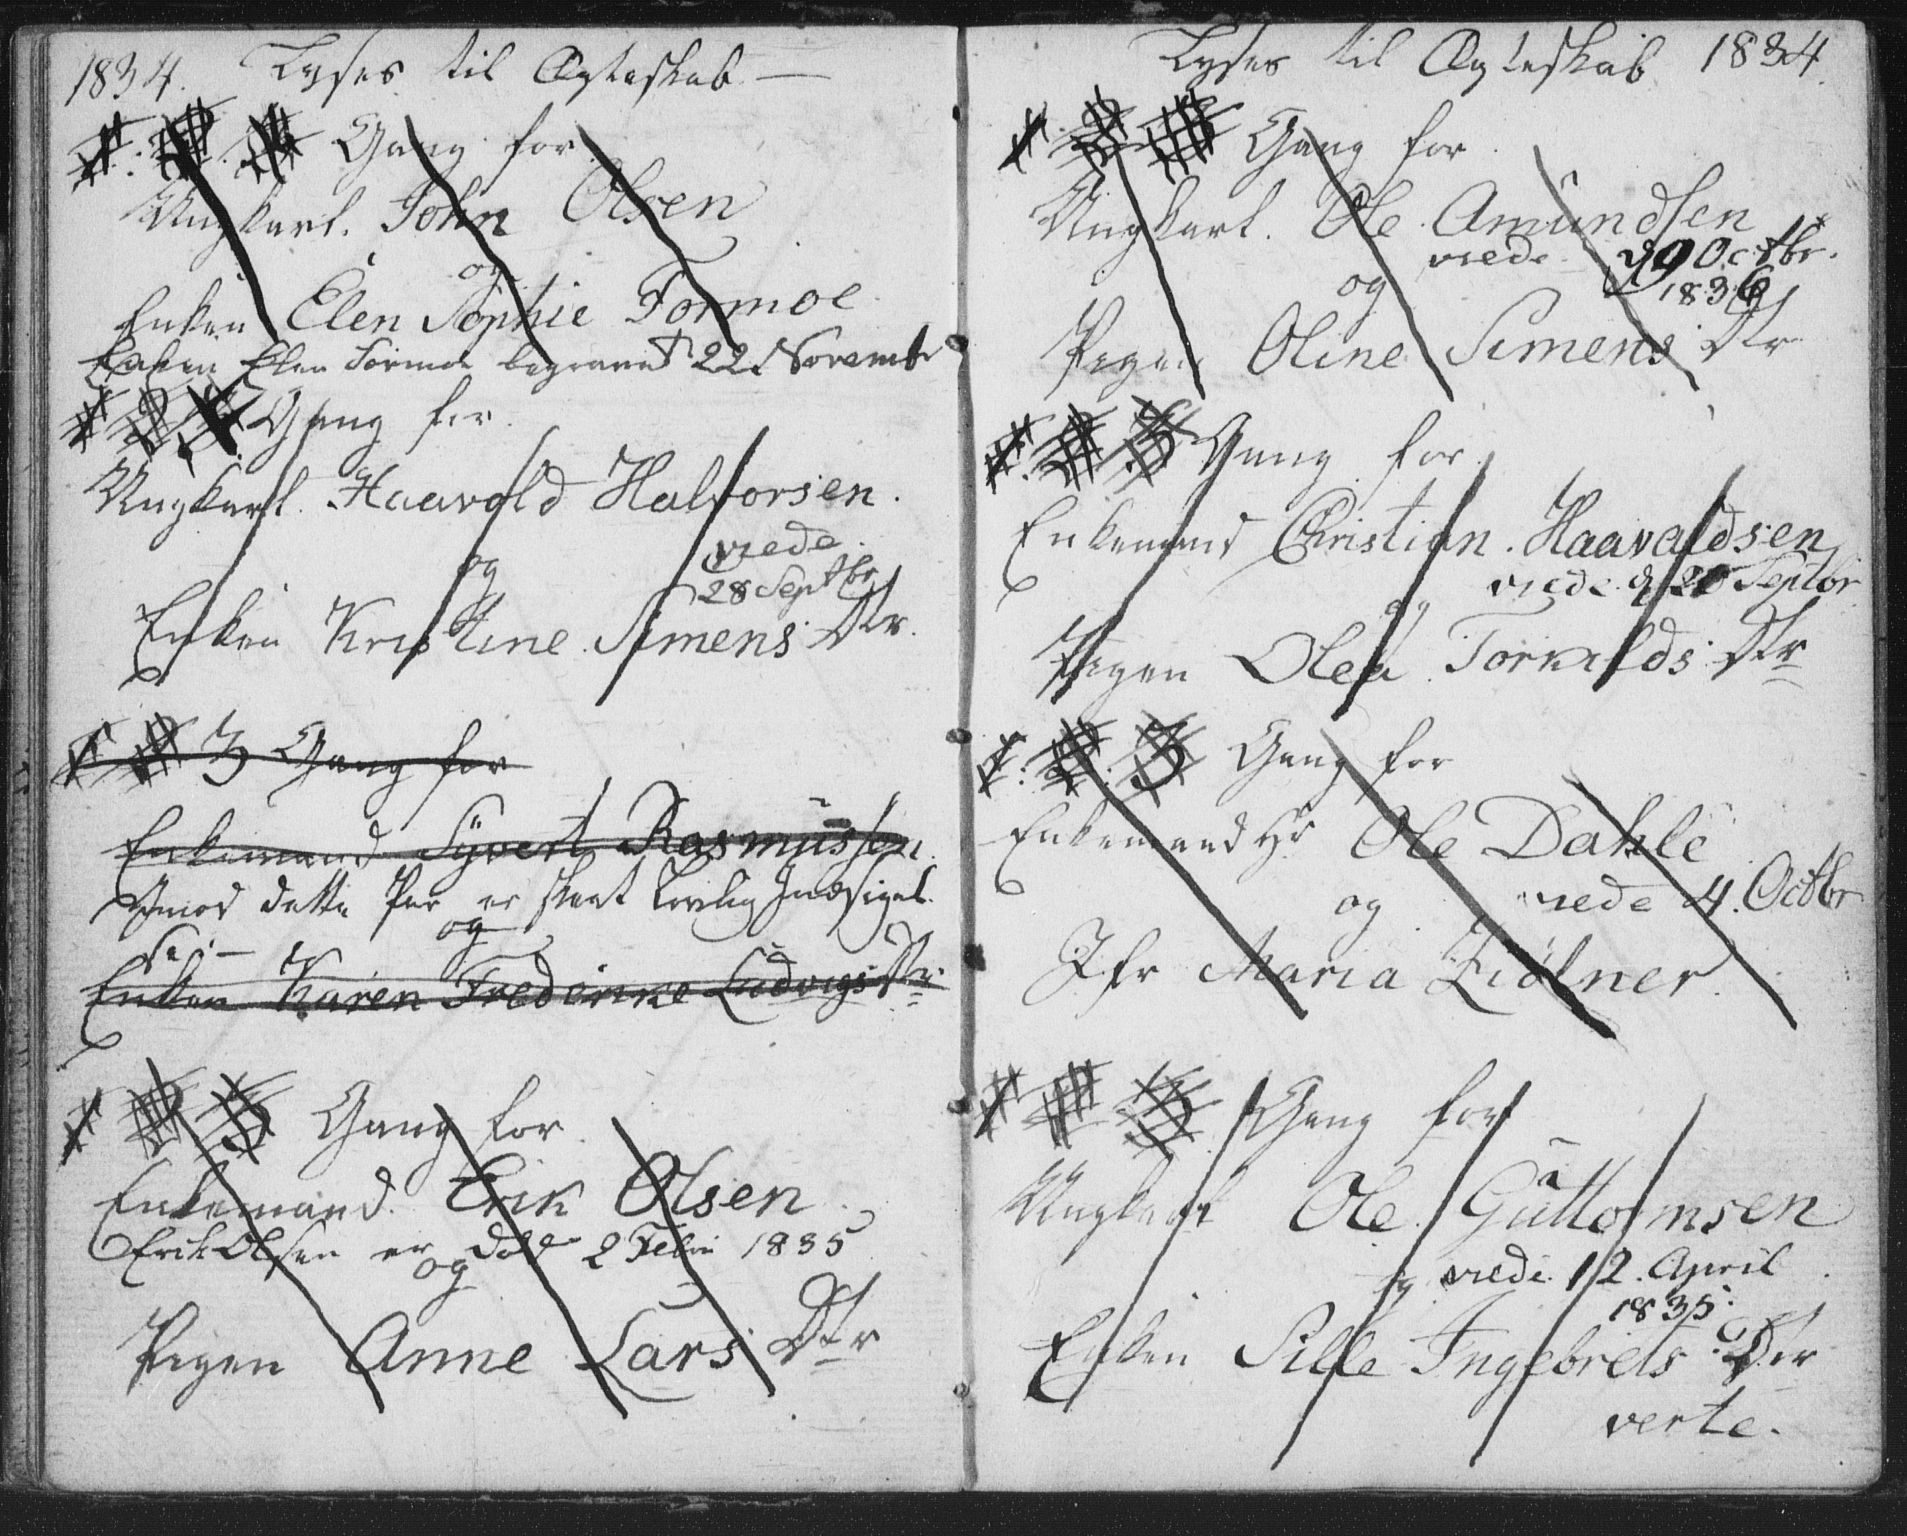 1834. Lyses til Ægteskab —
1. 2. 3 Gang for
Ungkarl. John Olsen
og
Enken Elen Sophie Formoe
Enken Elen Formoe begravet 22 Novemb
1 2 3 Gang for
Ungkarl. Haavold Halvorsen.
viede
og
28 Septbr
Enken Kristine Simens Dtr.
1 2 3 Gang for
Enkemand Syvert Rasmussen
Imod dette Par er skeet Lovlig Indsigel
se. —
og
Enken Karen Fredrikke Ludvigs Dtr
1 2 3 Gang for
Enkemand. Erik Olsen
Erik Olsen er død 2 Febr 1835
og
Pigen Anne Lars Dtr
Lyses til Ægteskab 1834.
1. 2 3 Gang for
Ungkarl. Ole Amundsen
viede 9 Octbr.
og 1836
Pigen Oline Simens Dtr
1. 2 3 Gang for
Enkemand Christian. Haavaldsen
viede d 28 Septbr
og
Pigen Olea Torkilds Dtr
1. 2. 3 Gang for
Enkemand Hr Ole Dahle
og viede 4. Octbr
Jfr Maria
1 2 3 Gang for
Ungkarl Ole Guttormsen
og viede 12. April
1835.
Enken Sille Ingebrets Dtr
verte.